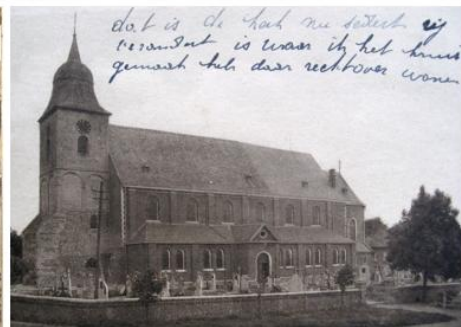 dat is de kerk nu sedert zij
veranderd is waar ik het kruis
gemaakt heb daar rechtover wonen